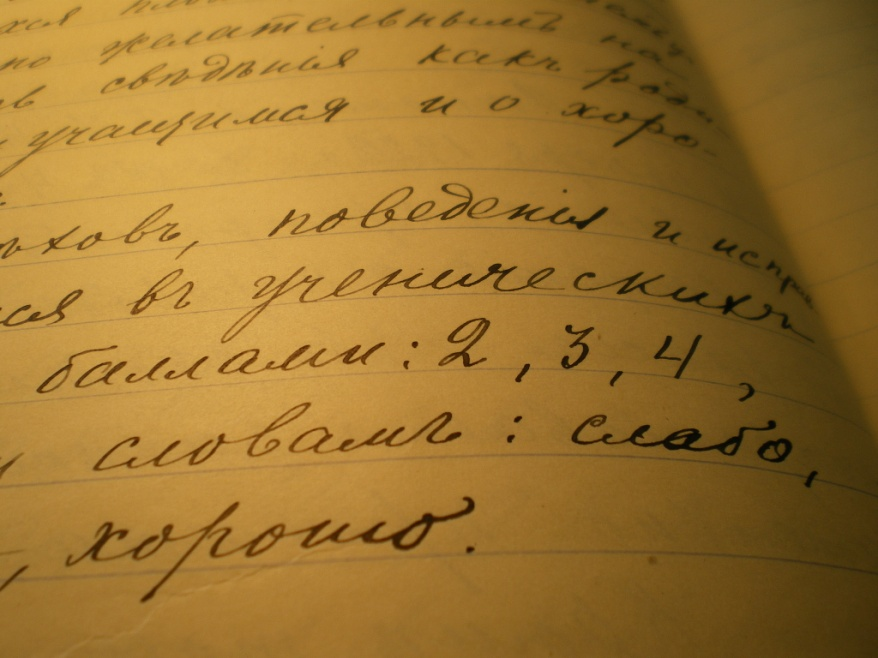 желательнымъ на-
свѣдѣнія какъ роди-
учащимся и о хоро-
ѣховъ, поведенія и испра
ся въ ученическихъ
баллами: 2, 3, 4,
словамъ: слабо,
, хорошо.